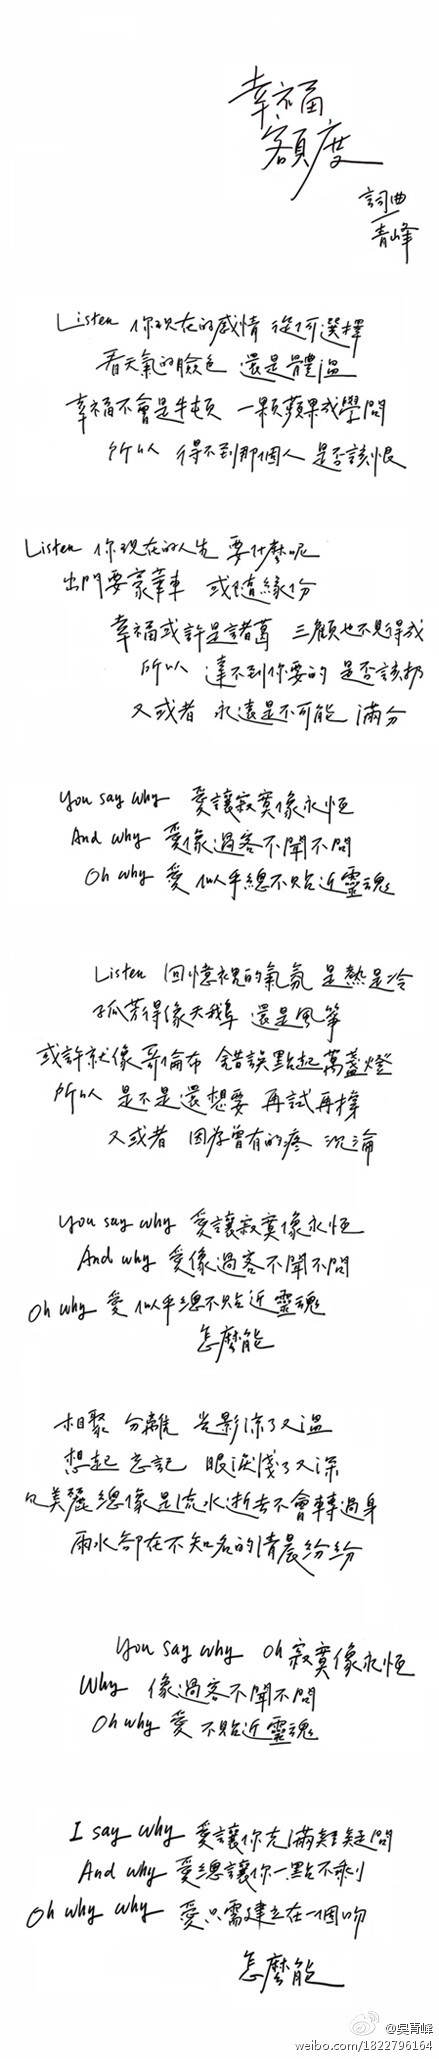 幸福
額度
詞曲
青峰
Listen 你現在的感情 從何選擇
看天氣的臉色 還是體溫
幸福不會是牛頓 一顆蘋果成學問
所以 得不到那個人 是否該恨
Listen 你現在的人生 要什麼呢
出門要豪華車 或隨緣份
幸福或許是諸葛 三顧也不見得成
所以 達不到你要的 是否該扔
又或者 永遠是不可能 滿分
You say why 愛讓寂寞像永恆
And why 愛像過客不聞不問
Oh why 愛 似乎總不貼近靈魂
Listen 回憶裡的氣氛 是熱是冷
孤芳得像天鵝 還是風箏
或許就像哥倫布 錯誤點起萬盞燈
所以 是不是還想要 再試再撐
又或者 因為曾有的疼 沉淪
You say why 愛讓寂寞像永恆
And why 愛像過客不聞不問
Oh why 愛 似乎總不貼近靈魂
怎麼能
相聚 分離 光影涼了又溫
想起 忘記 眼淚淺了又深
只美麗總像是流水逝去不會轉過身
雨水卻在不知名的清晨紛紛
You say why Oh 寂寞像永恆
Why 像過客不聞不問
Oh why 愛 不貼近靈魂
I say why 愛讓你充滿疑問
And why 愛總讓你一點不剩
Oh why why 愛只需建立在一個吻
怎麼能
@吳青峰
weibo.com/1822796164